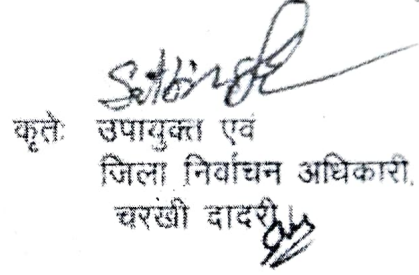 कृतेः उपायुक्त एवं
जिला निर्वाचन अधिकारी,
चरखी दादरी